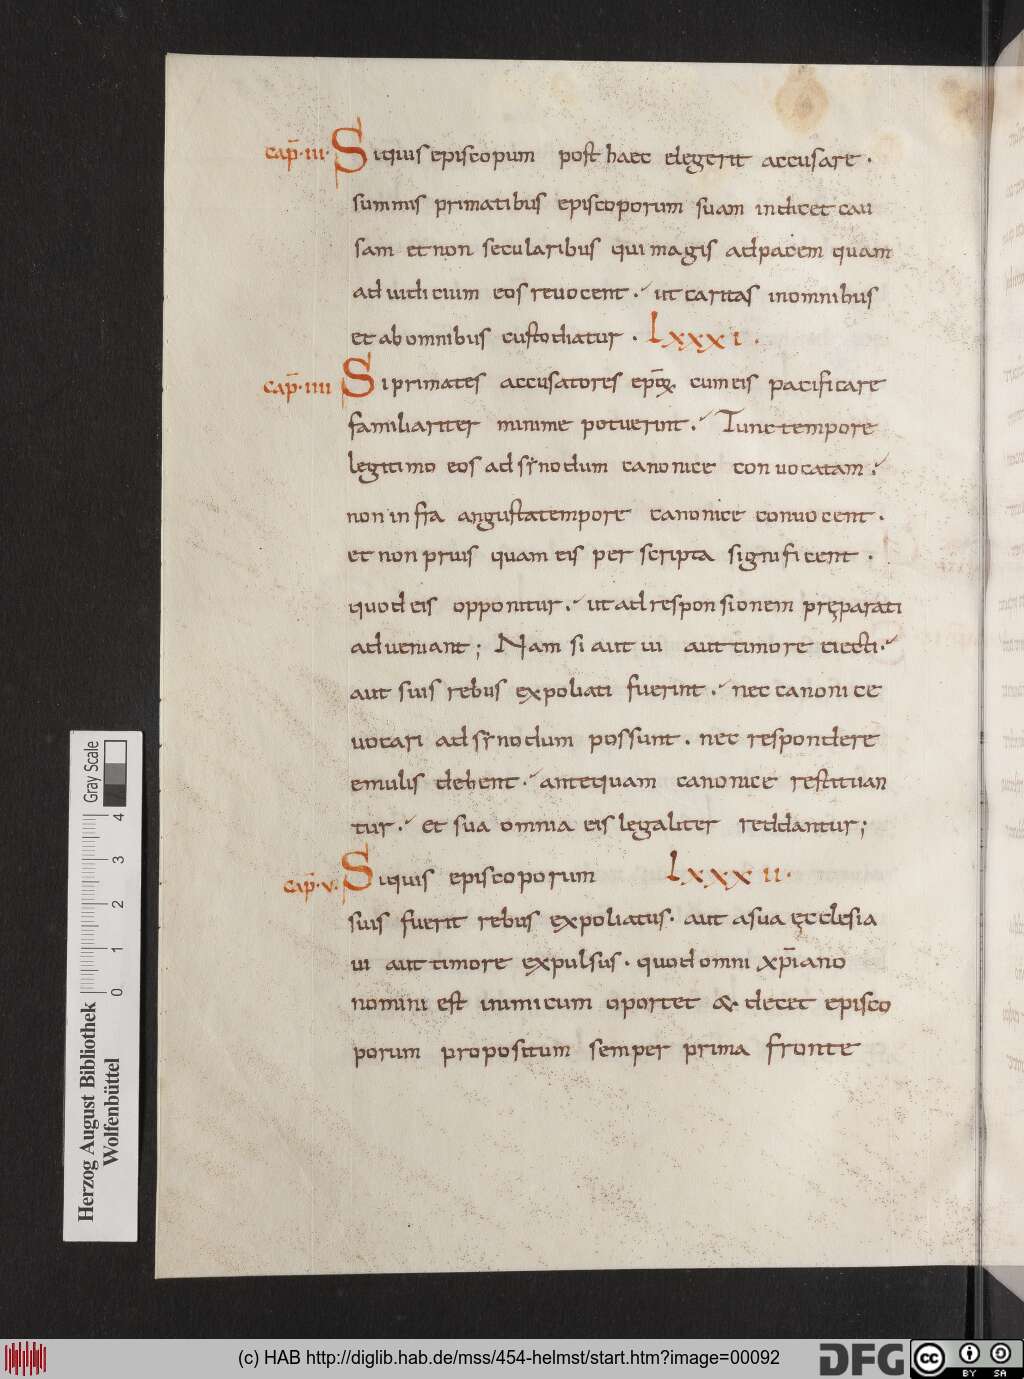 cap̄·iii· Siquis episcopum post haec elegerit accusare·
summis primatibus episcoporum suam indicet cau
sam et non secularibus qui magis ad pacem quam
ad iudicium eos reuocent· ut caritas in omnibus
et ab omnibus custodiatur· Lxxxi·
cap̄·iiii Si primates accusatores epōꝝ cum eis pacificare
familiariter minime potuerint· Tunc tempore
legitimo eos ad synodum canonice conuocatam·
non infra angusta tempore canonice conuocent·
et non prius quam eis per scripta significent·
quod eis opponitur· ut ad responsionem pręparati
adueniant; Nam si aut ui aut timore eiecti·
aut suis rebus expoliati fuerint· nec canonice
uocari ad synodum possunt· nec respondere
emulis debent· antequam canonice restituan
tur· et sua omnia eis legaliter reddantur;
cap̄·v· Siquis episcoporum Lxxxii·
suis fuerit rebus expoliatus· aut a sua ęcclesia
ui aut timore expulsus· quod omni xp̄iano
nomini est inimicum oportet &· decet episco
porum propositum semper prima fronte
Gray Scale
4
3
2
1
0
Herzog August Bibliothek
Wolfenbüttel
(c) HAB http://diglib.hab.de/mss/454-helmst/start.htm?image=00092
DFG
cc
BY SA